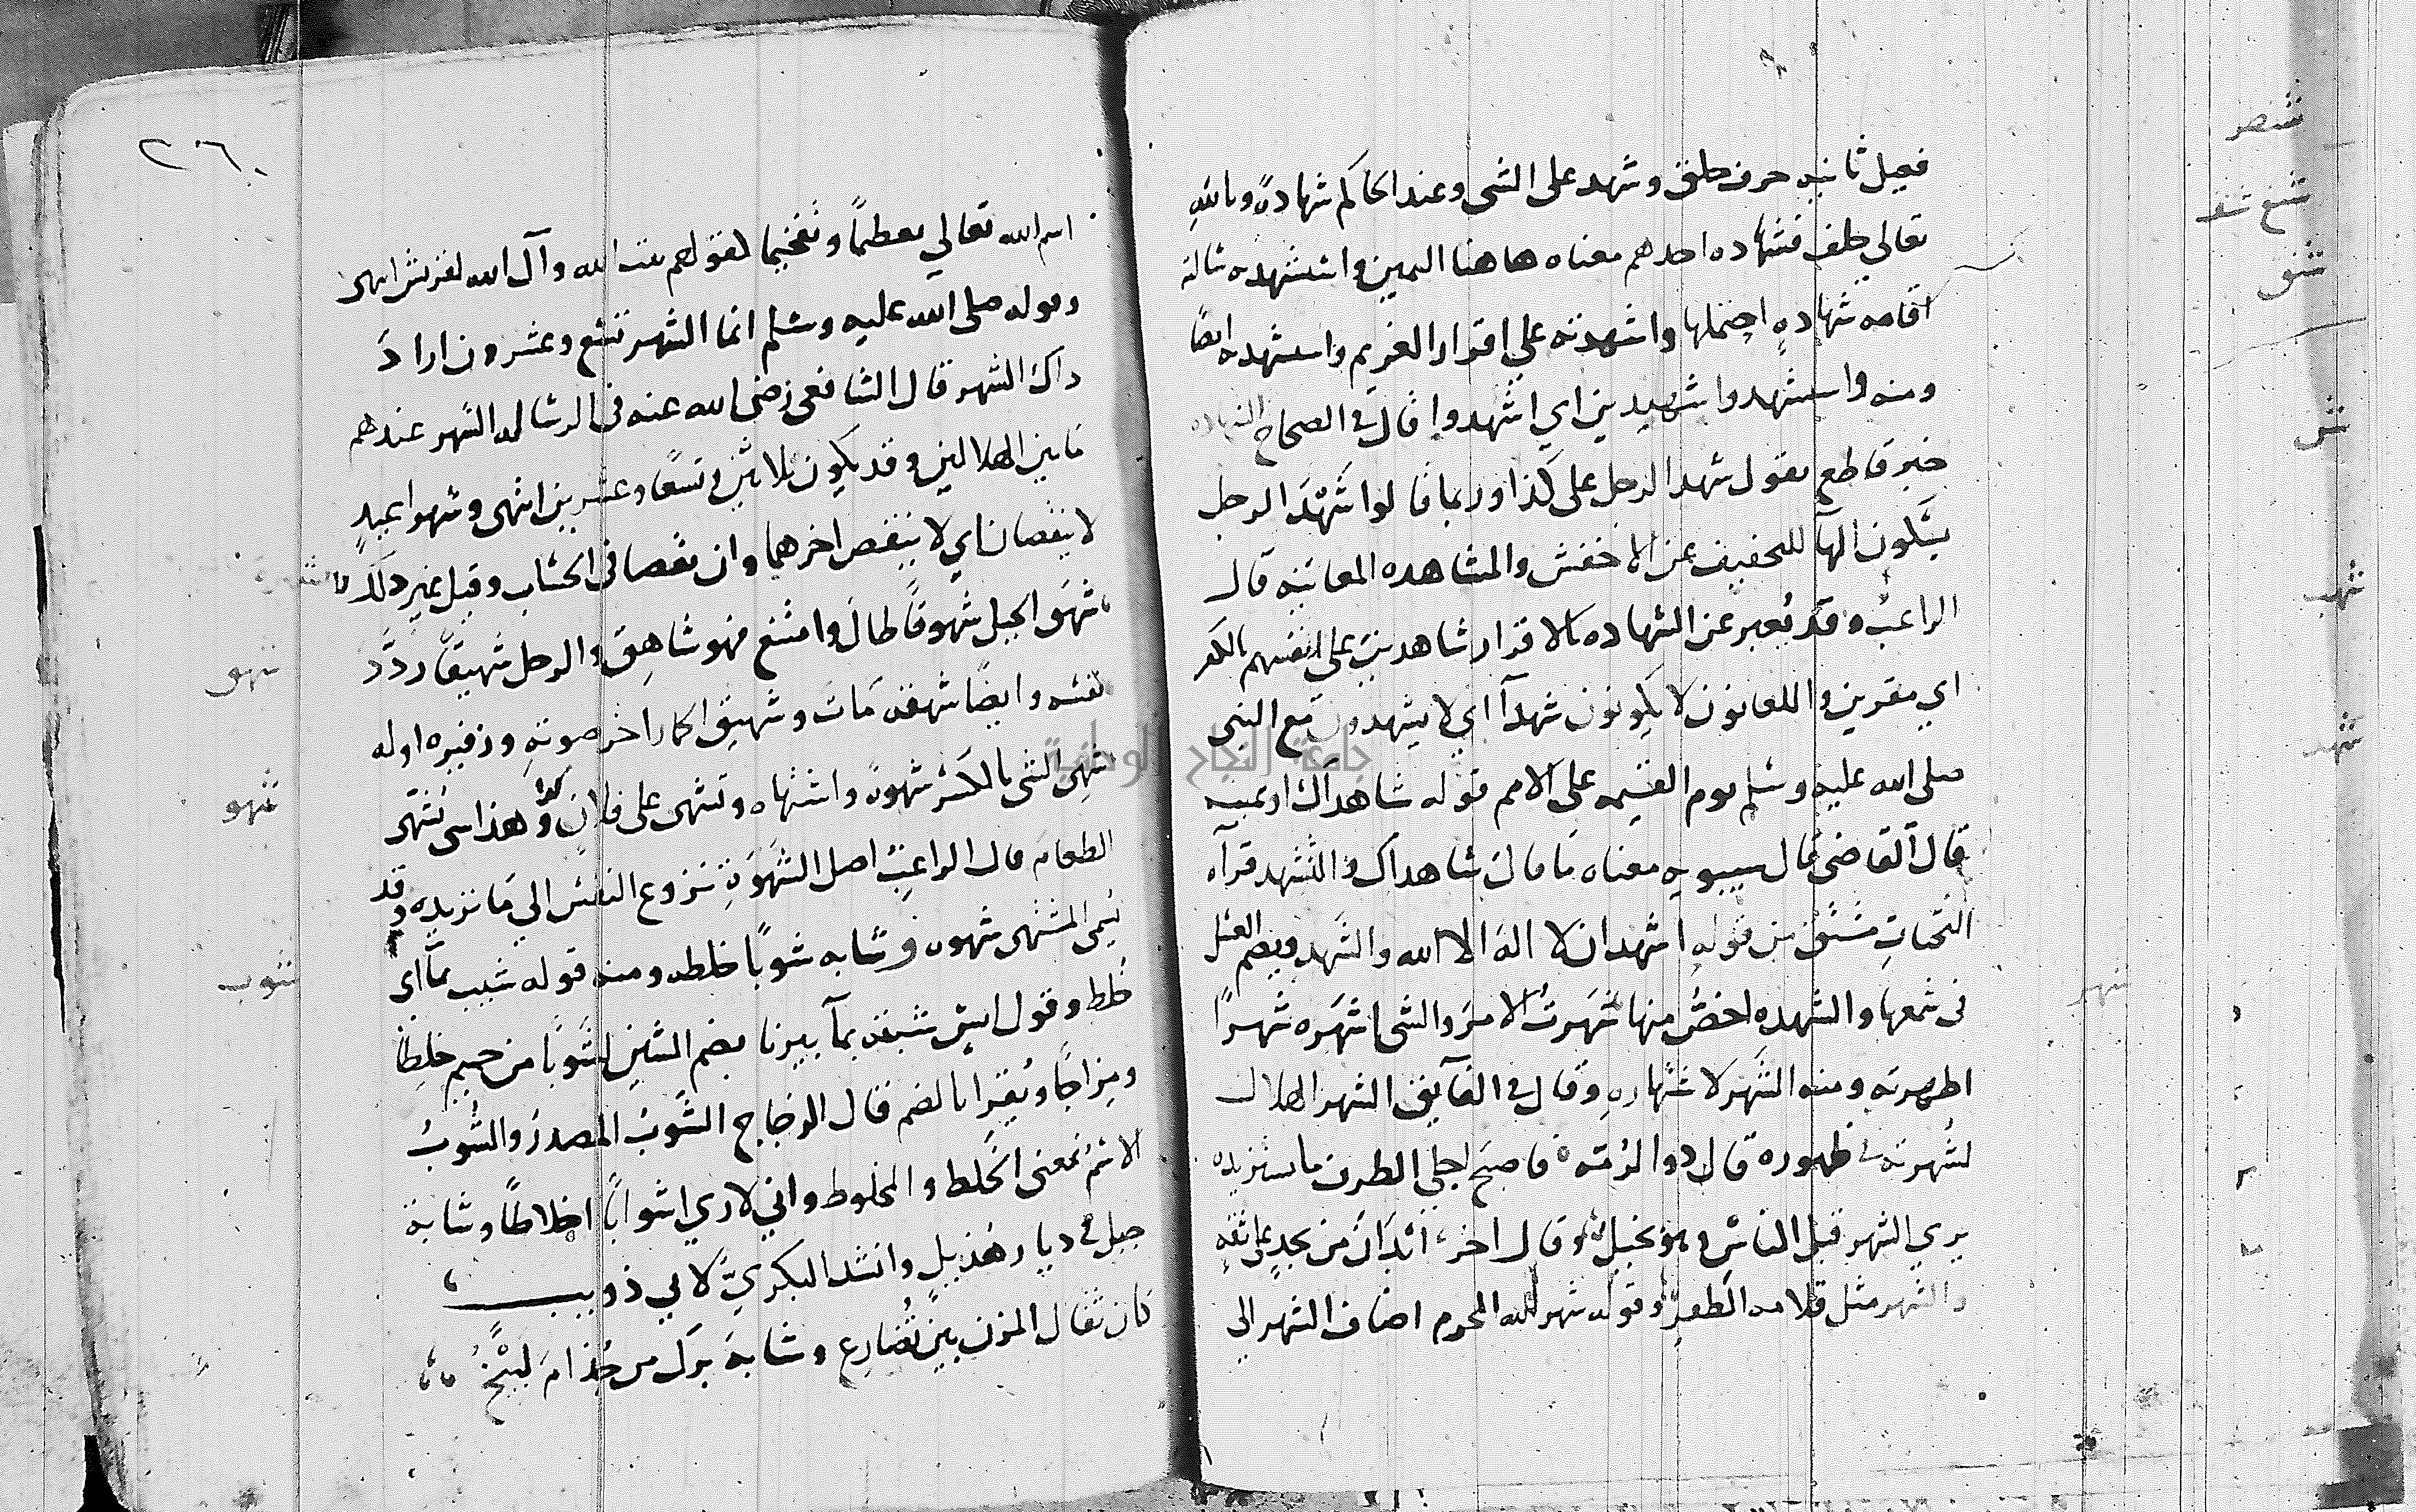 فعيل ثانيه حرف حلق وشهد على الشي وعند الحاكم شهادةً وبالله
تعالى حلف فشهاده احدهم معناه هاهنا اليمين واستشهده ساله
اقامه شهادهٍ احتملها واشهدته على اقرار الغريم واستشهده ايضا
ومنه واستشهدوا شهيدين اي اشهدوا قال في الصحاح الشهاده
خبر قاطع تقول شهد الرجل على كذا وربما قالوا شَهْدَ الرجل
بسكون الهآ للتخفيف عن الاخفش والمشاهده المعاينه قال
الراغب وقد يُعبر عن الشهاده بالاقرار شاهدين على انفسهم بالكفر
اي مقرين واللعانون لا يكونون شهدآ اي لا يشهدون مع النبي
صلى الله عليه وسلم يوم القيمه على الامم قوله شاهداك او يمينه
قال القاضي قال سيبويه معناه ما قال شاهداك والتشهد قرآه
التحيات مشتق من قوله اشهد ان لا اله الا الله والشهد ويضم العسل
في شمعها والشهده اخصُّ منها شَهَرتُ الامرَ والشي اشهَره شهرًا
اظهرته ومنه الشهر لاشتهارهِ وقال في الفآيق الشهر الهلال
لشهرته وظهوره قال ذو الرُمّه فاصبح اجلى الطرف ما يستزيده
يرى الشهر قبل الناس وهو نحيل وقال اخر ابدان من نجدٍ على ثقهٍ
والشهر مثل قلامه الظفر وقوله شهر الله المحرم اضاف الشهر الى
شهد
شهر
٢٦٠
اسم الله تعالي تعظيمًا وتفخيما لقولهم بيت الله وآل الله لقريش انتهى
وقوله صلى الله عليه وسلم انما الشهر تسع وعشرون اراد
ذاك الشهر قال الشافعي رضي الله عنه في الرساله الشهر عندهم
ما بين الهلالين وقد يكون ثلاثين وتسعًا وعشرين انتهى وشهرا عيدٍ
لا ينقصان اي لا ينقص اجرهما وان نقصا في الحساب وقيل غير ذلك
شهَق الجبل شهوقًا طالَ وامتنع فهو شاهِق والرجل شهيقًا ردَّد
نفسَه وايضًا شهقه مات وشهيق الحمار اخر صوته وزفيره اوله
شهِيَ الشي بالكسر شهوةً واشتهاه وتشهى على فلان كذا وهذا شي يشهّي
الطعام قال الراغب اصل الشهوَهِ نزوع النفس الي ما تريده وقد
يُسمى المشتهى شهوه وشابه شوبًا خلطه ومنه قوله شيب بمآ اي
خُلط وقول انس شبته بمآ بيرنا بضم الشين لشَوبًا من حميم خلِطًا
ومِزاجًا ويُقرا بالضم قال الزجاج الشَوبُ المصدرُ والشُوبُ
الاسم بمعنى الخلط والمخلوط واني لاري اشوابًا اخلاطًا وشابه
جبل في ديار هُذيلٍ وانشد البكريّ لابي ذويب
كان ثقال المزن بين تُضارعٍ وشابهَ بَرك من جُذام لبيجُ
شهق
شهو
شوب
جامعة النجاح الوطنية